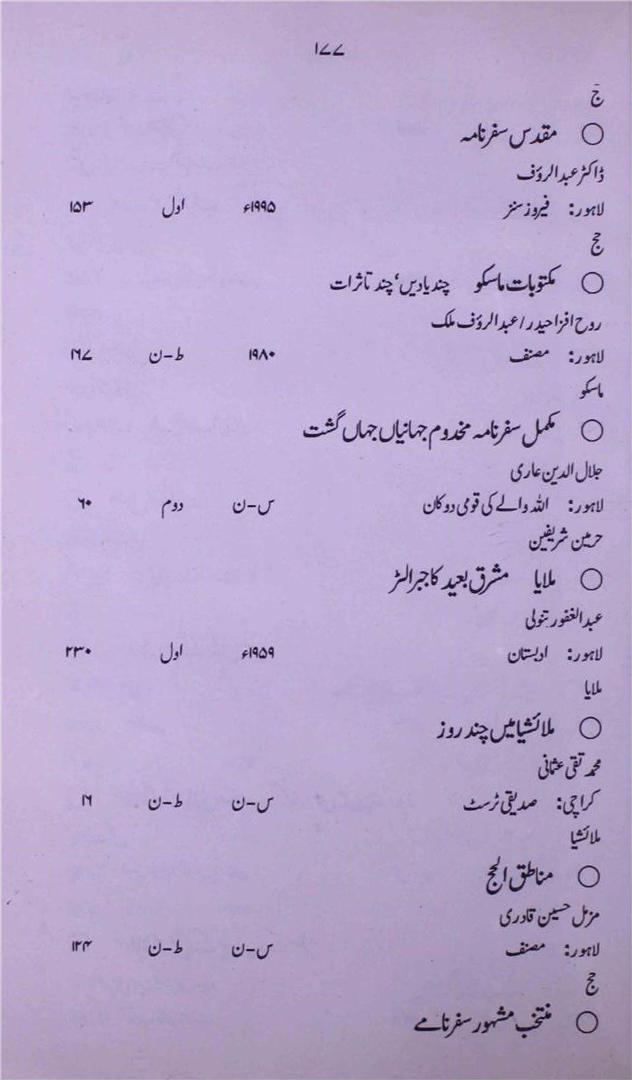 ۱۷۷
حج
○ مقدس سفرنامہ
ڈاکٹر عبدالرؤف
لاہور: فیروز سنز ۱۹۹۵ء اول ۱۵۳
حج
○ مکتوبات ماسکو چند یادیں‘ چند تاثرات
روح افزا حیدر/عبدالرؤف ملک
لاہور: مصنف ۱۹۸۰ ط-ن ۱۶۷
ماسکو
○ مکمل سفرنامہ مخدوم جہانیاں جہاں گشت
جلال الدین عاری
لاہور: اللہ والے کی قومی دوکان س-ن دوم ۶۰
حرمین شریفین
○ ملایا مشرق بعید کا جبرالٹر
عبدالغفور تنولی
لاہور: ادبستان ۱۹۵۹ء اول ۲۳۰
ملایا
○ ملائشیا میں چند روز
محمد تقی عثمانی
کراچی: صدیقی ٹرسٹ س-ن ط-ن ۱۶
ملائشیا
○ مناطق الحج
مزمل حسین قادری
لاہور: مصنف س-ن ط-ن ۱۲۴
حج
○ منتخب مشہور سفرنامے